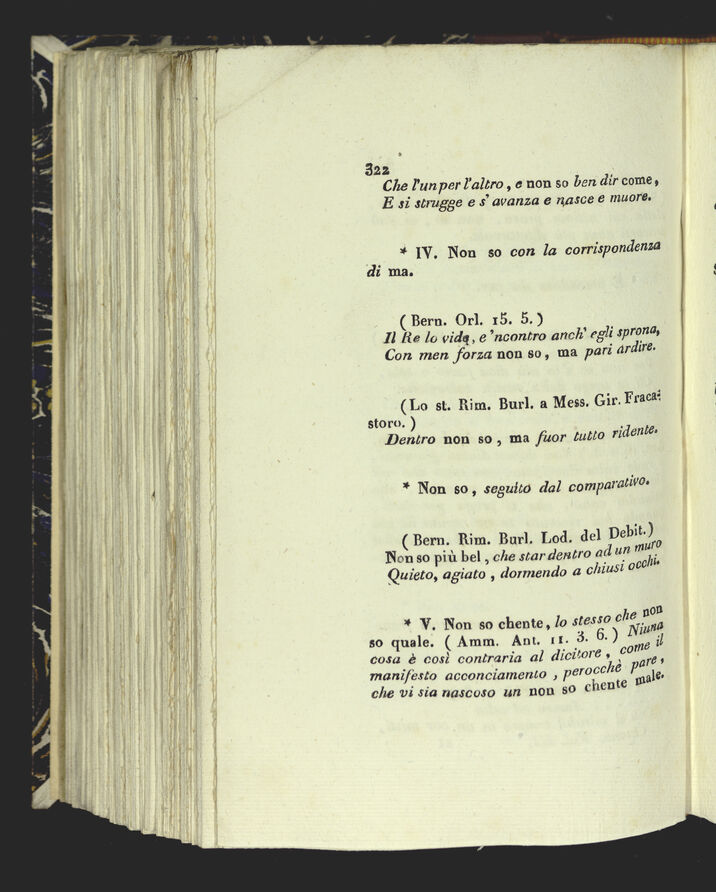 322
Che l'un per l'altro, e non so ben dir come,
E si strugge e s' avanza e nasce e muore.
* IV. Non so con la corrispondenza
di ma.
(Bern. Orl. 15. 5.)
Il Re lo vide, e 'ncontro anch' egli sprona,
Con men forza non so, ma pari ardire.
(Lo st. Rim. Burl. a Mess. Gir. Fraca-
storo.)
Dentro non so, ma fuor tutto ridente.
* Non so, seguito dal comparativo.
(Bern. Rim. Burl. Lod. del Debit.)
Non so più bel, che star dentro ad un muro
Quieto, agiato, dormendo a chiusi occhi.
* V. Non so chente, lo stesso che non
so quale. (Amm. Ant. 11. 3. 6.) Niuna
cosa è così contraria al dicitore, come il
manifesto acconciamento, perocchè pare,
che vi sia nascoso un non so chente male.